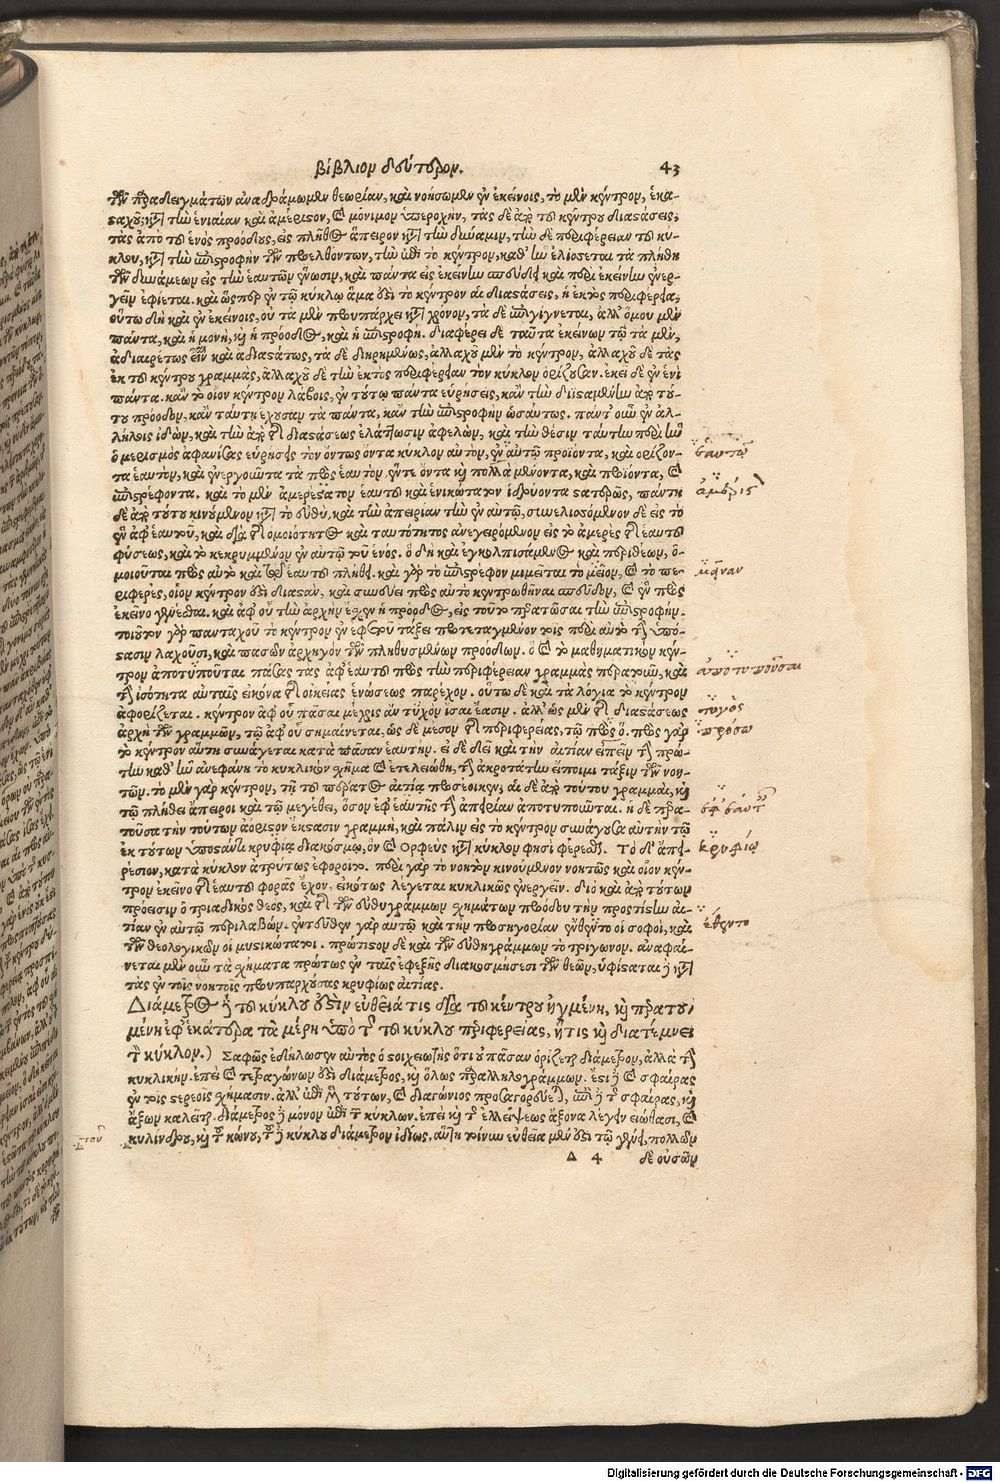 βιβλίον δεύτερον. 43
τῶν παραδειγμάτων ἀναδράμωμεν θεωρίαν, καὶ νοήσωμεν ἐν ἐκείνοις, τὸ μὲν κέντρον, ἑκα-
τὰς ἀπὸ τοῦ ἑνὸς προόδους, εἰς πλῆθος ἄπειρον κατὰ τὴν δύναμιν, τὴν δὲ περιφέρειαν τοῦ κύ-
κλου, κατὰ τὴν ἐπιστροφὴν τῶν προελθόντων, τὴν ἐπὶ τὸ κέντρον, καθ' ἣν ἑλίσσεται τὰ πλήθη
τῶν δυνάμεων εἰς τὴν ἑαυτῶν ἕνωσιν, καὶ πάντα εἰς ἐκείνην σπεύδει καὶ περὶ ἐκείνην ἐνερ-
γεῖν ἐφίεται. καὶ ὥσπερ ἐν τῷ κύκλῳ ἅμα ἐστὶ τὸ κέντρον αἱ διαστάσεις, ἡ ἐκτὸς περιφέρεια,
οὕτω δὴ καὶ ἐν ἐκείνοις, οὐ τὰ μὲν προυπάρχει κατὰ χρόνον, τὰ δὲ ἐπιγίγνεται, ἀλλ' ὁμοῦ μὲν
πάντα, καὶ ἡ μονὴ, καὶ ἡ πρόοδος, καὶ ἡ ἐπιστροφή. διαφέρει δὲ ταῦτα ἐκείνων τῷ τὰ μὲν,
ἀδιαιρέτως εἶναι καὶ ἀδιαστάτως, τὰ δὲ διῃρημένως, ἀλλαχοῦ μὲν τὸ κέντρον, ἀλλαχοῦ δὲ τὰς
ἐκ τοῦ κέντρου γραμμὰς, ἀλλαχοῦ δὲ τὴν ἐκτὸς περιφέρειαν τὸν κύκλον ὁρίζουσαν. ἐκεῖ δὲ ἐν ἑνὶ
πάντα. κἂν τὸ οἷον κέντρον λάβοις, ἐν τούτῳ πάντα εὑρήσεις, κἂν τὴν διισταμένην ἀπὸ τού-
του πρόοδον, κἂν ταύτῃ ἔχουσαν τὰ πάντα, κἂν τὴν ἐπιστροφὴν ὡσαύτως. πάντ' οὖν ἐν ἀλ-
λήλοις ἰδὼν, καὶ τὴν ἀπὸ τῆς διαστάσεως ἐλάττωσιν ἀφελὼν, καὶ τὴν θέσιν ταύτην περὶ ἣν
ὁ μερισμὸς ἀφανίσας εὑρήσεις τὸν ὄντως ὄντα κύκλον αὐτὸν, ἐν αὐτῷ προϊόντα, καὶ ὁρίζον-
τα ἑαυτὸν, καὶ ἐνεργοῦντα τὰ πρὸς ἑαυτὸν, ἕν τε ὄντα καὶ πολλὰ μένοντα, καὶ προϊόντα, καὶ
ἐπιστρέφοντα. καὶ τὸ μὲν ἀμερέστατον ἑαυτοῦ καὶ ἑνικώτατον ἱδρύοντα σταθερῶς, πάντη
δὲ ἀπὸ τούτου κινούμενον κατὰ τὸ εὐθὺ, καὶ τὴν ἀπειρίαν τὴν ἐν αὐτῷ, συνελισσόμενον δὲ εἰς τὸ
ἓν ἀφ' ἑαυτοῦ, καὶ διὰ τῆς ὁμοιότητος καὶ ταυτότητος ἀνεγειρόμενον εἰς τὸ ἀμερὲς τῆς ἑαυτοῦ
φύσεως, καὶ τὸ κεκρυμμένον ἐν αὐτῷ τοῦ ἑνός. ὃ δὴ καὶ ἐγκολπισάμενος καὶ περιθέων, ὁ-
εἰφερὲς, οἷον κέντρον ἐστὶ διαστὰν, καὶ συννεύει πρὸς αὐτὸ κεντρωθῆναι σπεῦδον, καὶ ἓν πρὸς
ἐκεῖνο γενέσθαι. καὶ ἀφ' οὗ τὴν ἀρχὴν ἔσχεν ἡ πρόοδος, εἰς τοῦτο περατῶσαι τὴν ἐπιστροφήν.
στασιν λαχοῦσι, καὶ πασῶν ἀρχηγὸν τῶν πληθυσμένων προόδων. ὃ καὶ τὸ μαθηματικὸν κέν-
τρον ἀποτυποῦται πάσας τὰς ἀφ' ἑαυτοῦ πρὸς τὴν περιφέρειαν γραμμὰς περατοῦν, καὶ
τὴν ἰσότητα αὐταῖς εἰκόνα τῆς οἰκείας ἑνώσεως παρέχον. οὕτω δὲ καὶ τὰ λόγια τὸ κέντρον
ἀφορίζεται. κέντρον ἀφ' οὗ πᾶσαι μέχρις ἂν τύχον ἴσαι ἔασιν. ἀλλ' ὡς μὲν τῆς διαστάσεως
ἀρχὴ τῶν γραμμῶν, τῷ ἀφ' οὗ σημαίνεται, ὡς δὲ μέσον τῆς περιφερείας, τῷ πρὸς ὅ. πρὸς γὰρ
τὸ κέντρον αὕτη συνάγεται κατὰ πᾶσαν ἑαυτήν. εἰ δὲ δεῖ καὶ τὴν αἰτίαν εἰπεῖν τὴν πρώ-
την καθ' ἣν ἀνεφάνη τὸ κυκλικὸν σχῆμα καὶ ἐτελειώθη, τὴν ἀκροτάτην εἴποιμι τάξιν τῶν νοη-
τῶν. τὸ μὲν γὰρ κέντρον, τῇ τοῦ πέρατος αἰτίᾳ προσέοικεν, αἱ δὲ ἀπὸ τούτου γραμμαὶ, καὶ
τῷ πλήθει ἄπειροι καὶ τῷ μεγέθει, ὅσον ἐφ' ἑαυτῆς τὴν ἀπειρίαν ἀποτυποῦνται. ἡ δὲ περα-
τοῦσα τὴν τούτων ἀόριστον ἔκστασιν γραμμὴ, καὶ πάλιν εἰς τὸ κέντρον συνάγουσα αὐτὴν τῷ
ρέσιον, κατὰ κύκλον ἀτρύτως ἐφορεῖτο. περὶ γὰρ τὸ νοητὸν κινούμενον νοητῶς καὶ οἷον κέν-
τρον ἐκεῖνο τῆς ἑαυτοῦ φορᾶς ἔχον, εἰκότως λέγεται κυκλικῶς ἐνεργεῖν. διὸ καὶ ἀπὸ τούτων
πρόεισιν ὁ τριαδικὸς θεὸς, καὶ τῆς τῶν εὐθυγράμμων σχημάτων προόδου τὴν προστίστην αἰ-
τίαν ἐν αὐτῷ περιλαβών. ἐντεῦθεν γὰρ αὐτῷ καὶ τὴν προσηγορίαν ἔνθεντο οἱ σοφοὶ, καὶ
τῶν θεολογικῶν οἱ μυστικώτατοι. πρώτιστον δὲ καὶ τῶν εὐθυγράμμων τὸ τρίγωνον. ἀναφαί-
νεται μὲν οὖν τὰ σχήματα πρώτως ἐν ταῖς ἐφεξῆς διακοσμήσεσι τῶν θεῶν, ὑφίσταται δὲ κατὰ
τὰς ἐν τοῖς νοητοῖς προυπαρχούσας κρυφίως αἰτίας.
Διάμετρος δὲ τοῦ κύκλου ἐστὶν εὐθεῖά τις διὰ τοῦ κέντρου ἠγμένη, καὶ περατου-
μένη ἐφ' ἑκάτερα τὰ μέρη ὑπὸ τῆς τοῦ κύκλου περιφερείας, ἥτις καὶ διατέμνει
τὸν κύκλον.) Σαφῶς ἐδήλωσεν αὐτὸς ὁ στοιχειωτὴς ὅτι οὐ πᾶσαν ὁρίζεται διάμετρον, ἀλλὰ τὴν
κυκλικήν. ἐπεὶ καὶ τετραγώνων ἐστὶ διάμετρος, καὶ ὅλως παραλληλογράμμων. ἔστι δὲ καὶ σφαίρας
ἐν τοῖς στερεοῖς σχήμασιν. ἀλλ' ἐπὶ μὲν τούτων, καὶ διαγώνιος προσαγορεύεται, ἐπὶ δὲ τῆς σφαίρας, καὶ
ἄξων καλεῖται. διάμετρος δὲ μόνον ἐπὶ τῶν κύκλων. ἐπεὶ καὶ τῆς ἐλλείψεως ἄξονα λέγειν εἰώθασι, καὶ
κυλίνδρου, καὶ τοῦ κώνου, τοῦ δὲ κύκλου διάμετρον ἰδίως. αὕτη τοίνυν εὐθεῖα μέν ἐστι τῷ γένει, πολλῶν
Δ 4 δὲ οὐσῶν
ἑαυτῷ
ἀποτυποῦσαι
πρόσω
κρυφίῳ
ἔθεντο
τοῦ
Digitalisierung gefördert durch die Deutsche Forschungsgemeinschaft - DFG